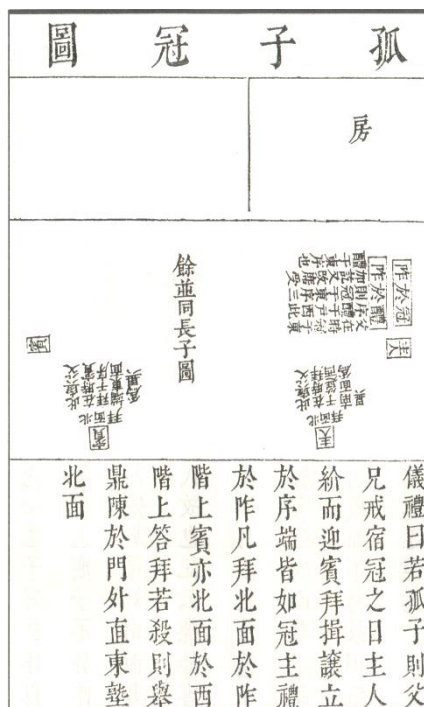 孤子冠圖
房
冠於阼
醴於阼
主人
餘並同長子圖
賓
主人
賓
儀禮曰若孤子則父
兄戒宿冠之日主人
紒而迎賓拜揖讓立
於序端皆如冠主禮
於阼凡拜北面於阼
階上賓亦北面於西
階上答拜若殺則舉
鼎陳於門外直東塾
北面